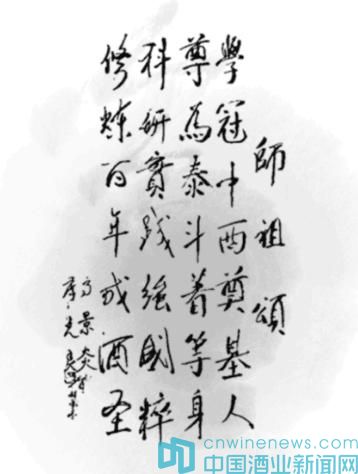 師祖頌
學冠中西奠基人
尊為泰斗著等身
科研實践強國粹
修煉百年成酒圣
高景炎
cnwinenews.com
中国酒业新闻网